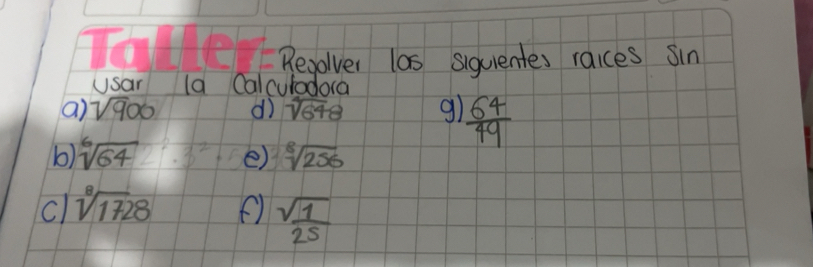 Taller: Resolver las siguientes raices sin
usar la Calculadora
a) √900 d) √648 g) 64/49
b) ⁶√64 e) ⁸√256
c) ⁸√1728 f) √1/25